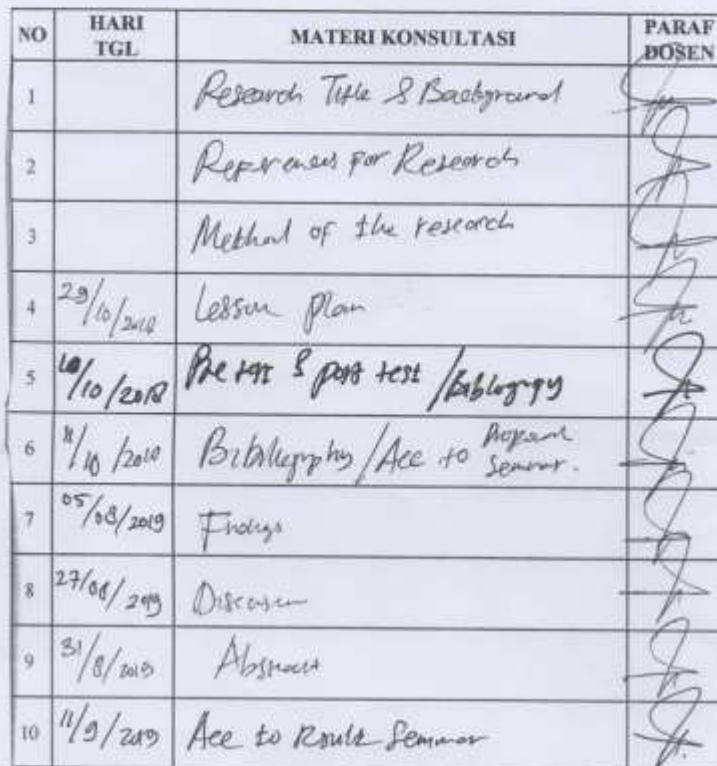 NO HARI TGL MATERI KONSULTASI PARAF DOSEN
1 Research Title & Background
2 References for Research
3 Method of the research
4 29/10/2018 Lesson plan
5 10/10/2018 Pre test & post test /
6 11/10/2018 / Acc to Proposal Seminar.
7 05/08/2019 Findings
8 27/08/2019 Discussion
9 31/8/2019 Abstract
10 11/9/2019 Acc to Result Seminar